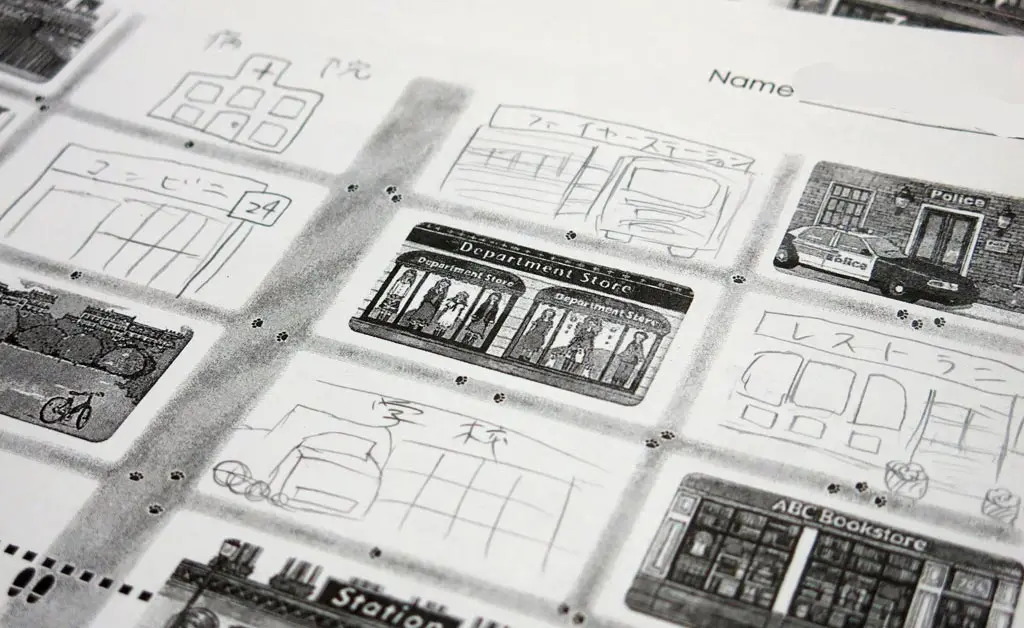 病 院
Name
ファイヤーステーション
コンビニ
24
Police
Police
Department Store
Department Store
Department Store
レストラン
学校
ABC Bookstore
Station